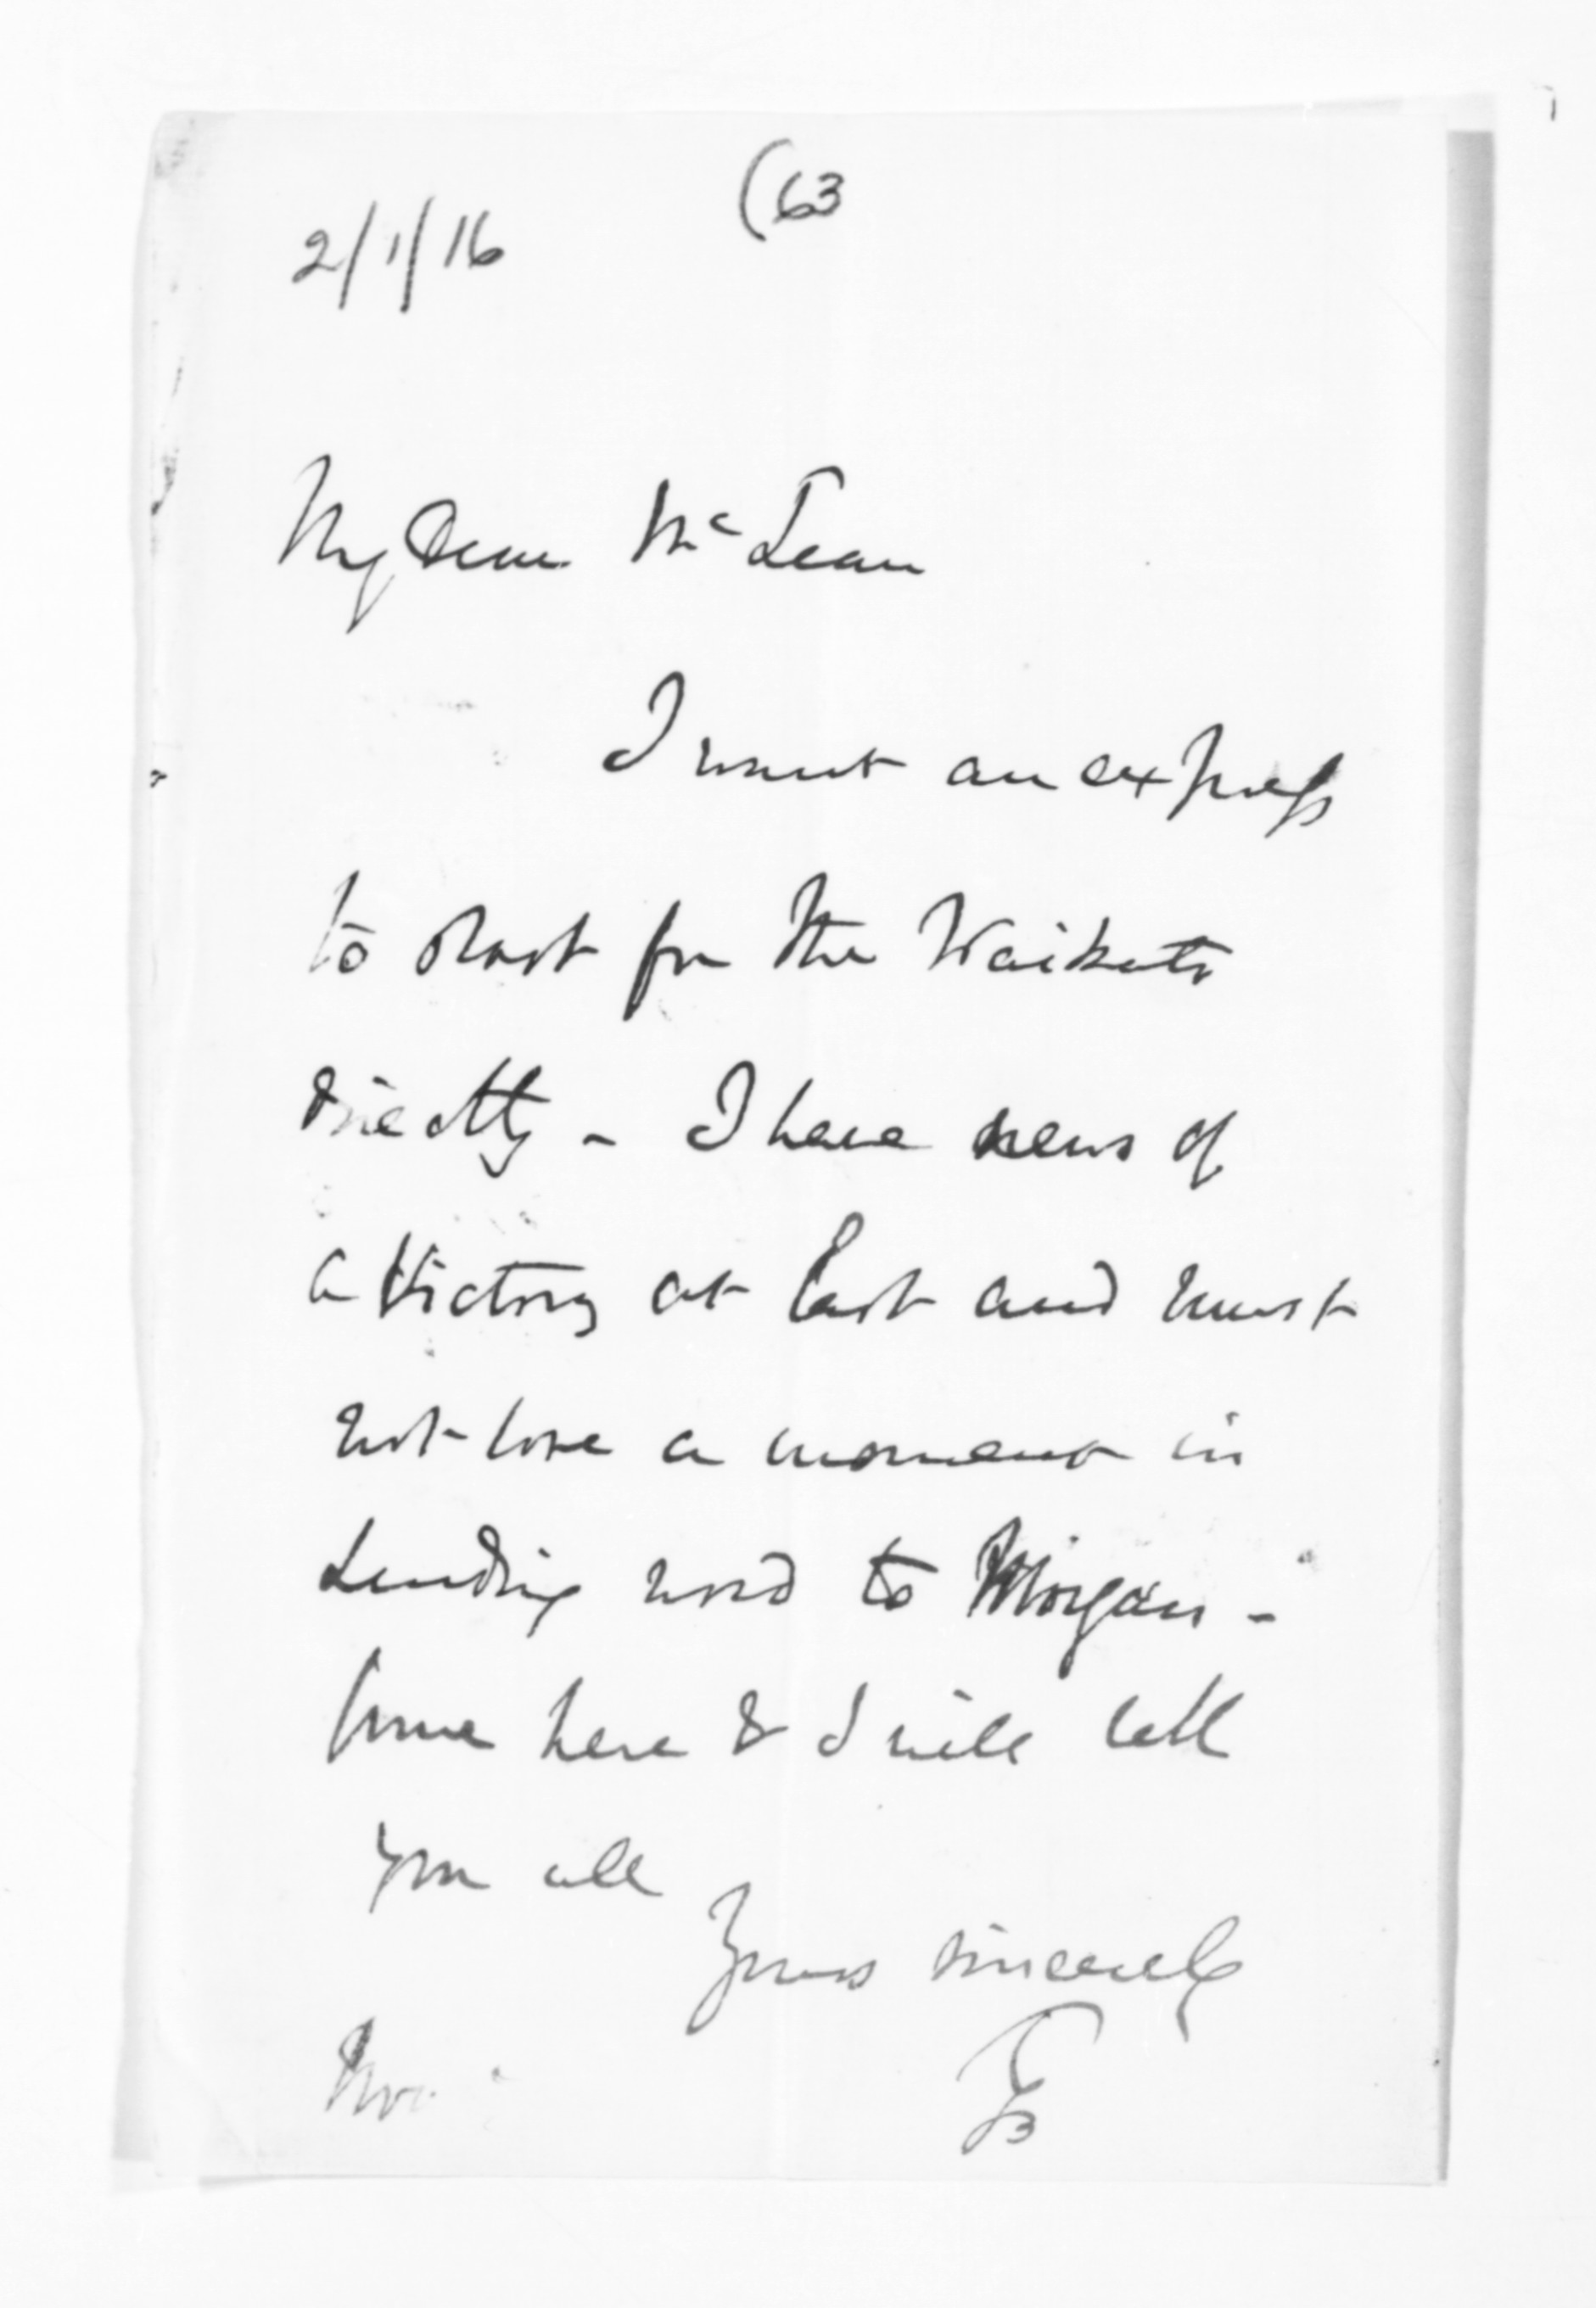 (63
2/1/16
My Dear McLean
I want an express
to start for the Waikato
directly - I have news of
a Victory at last and must
not lose a moment in
sending word to Morgan -
Come here & I will tell
you all
Yours sincerely